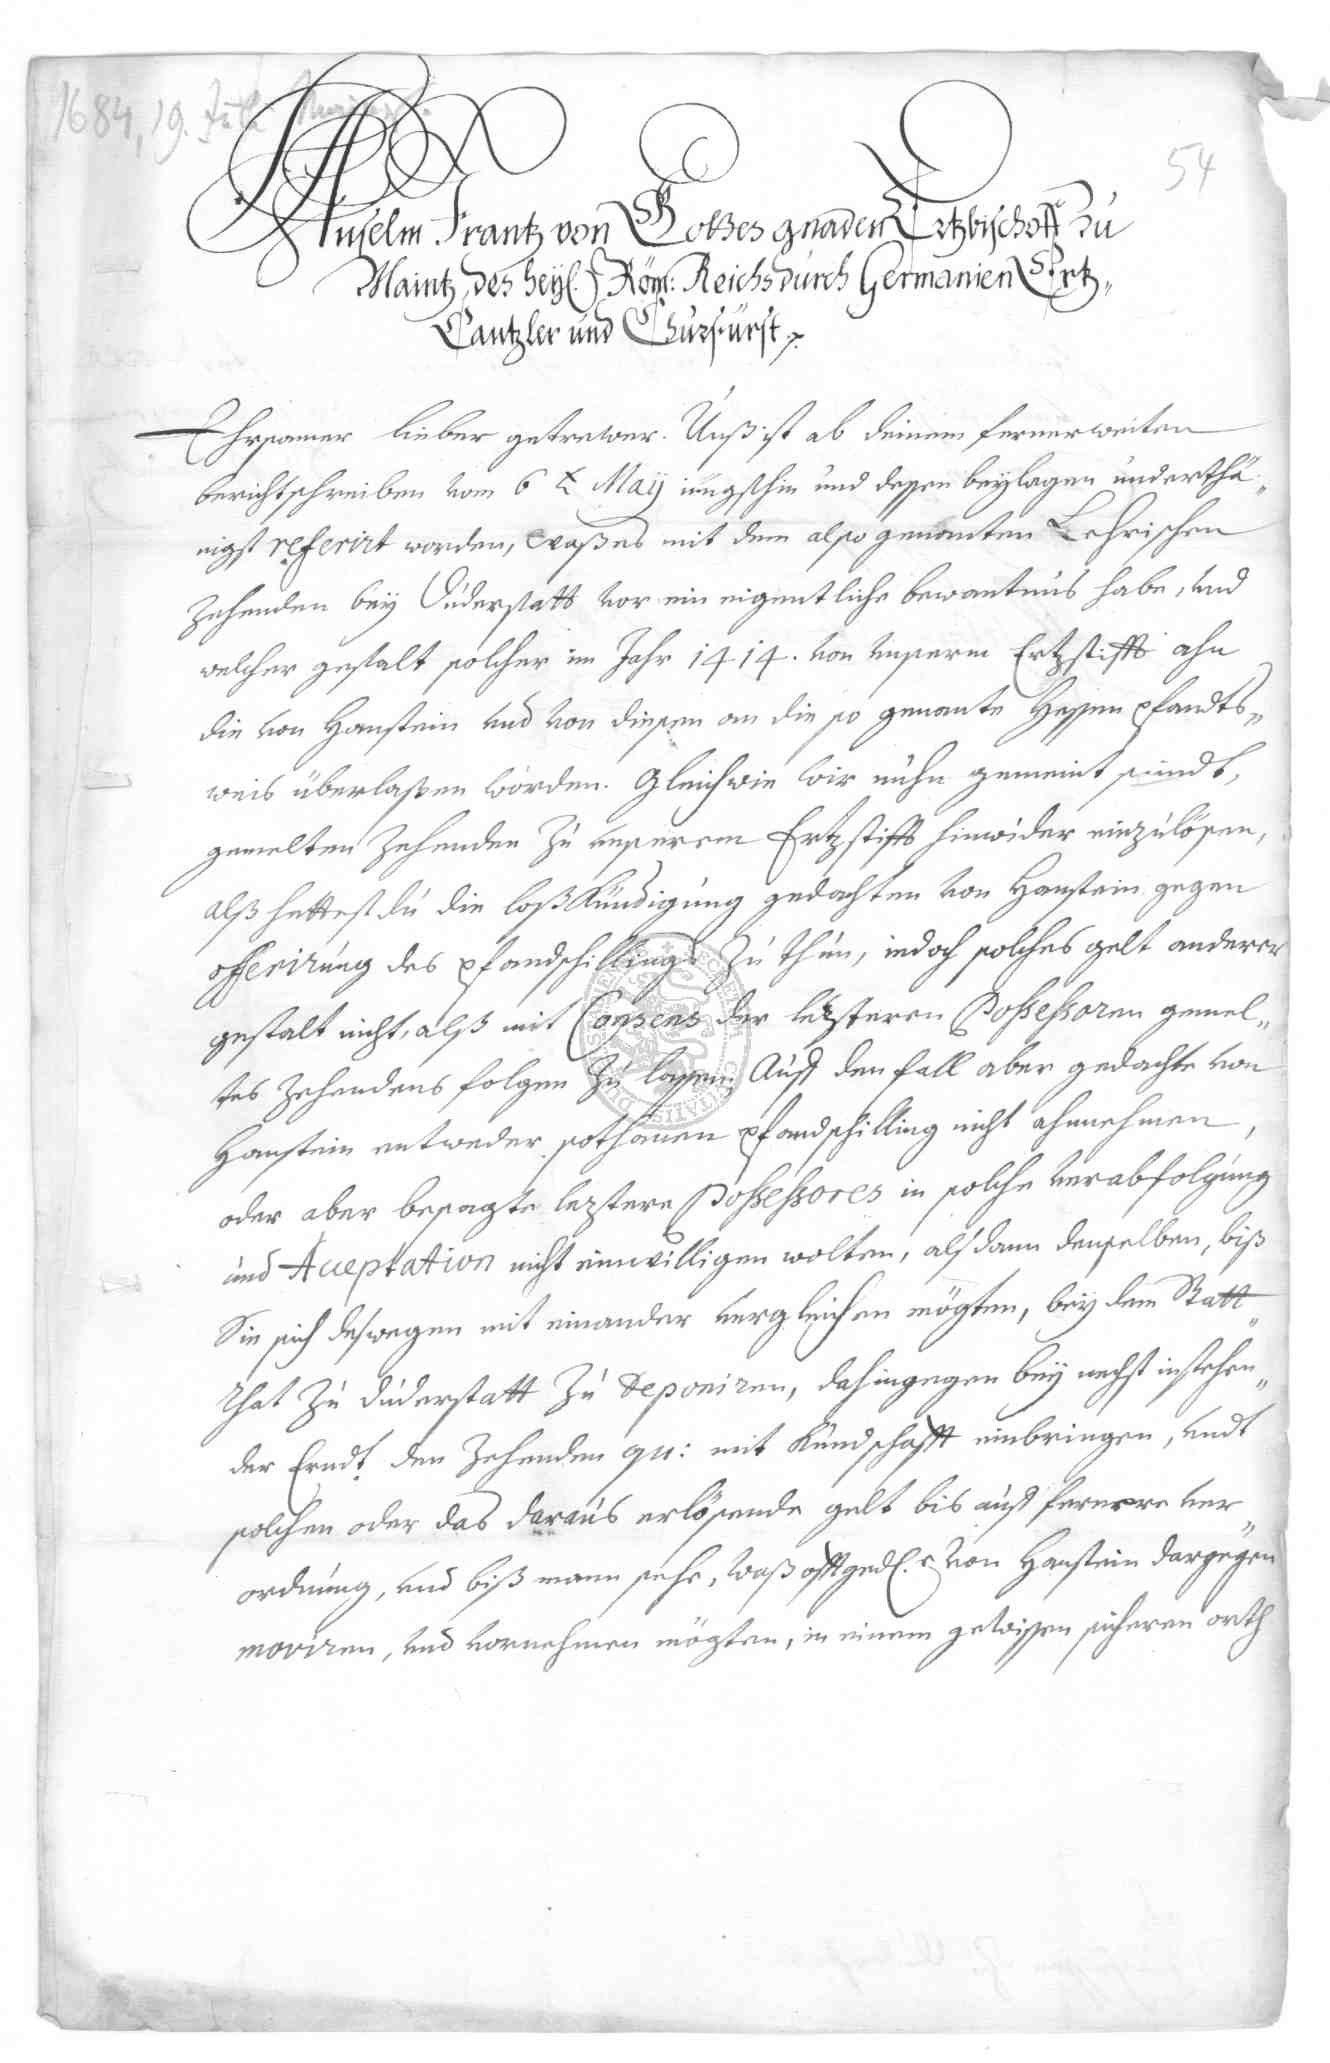 1684, 19. Juli
54
Anselm Frantz von Gottes gnaden Ertzbischoff zu
Maintz, des heyl. Röm: Reichs durch Germanien Ertz„
Cantzler und Churfürst
Ehrsamer lieber getrewer. Unß ist ab deinem fernerweiten
berichtschreiben vom 6 May jüngsthin und dessen beylagen underthä„
nigst referirt worden, waß es mit dem also genanten Lehrischen
Zehenden bey Duderstatt vor ein eigentliche bewantnus habe, und
welcher gestalt solcher im Jahr 1414. von unserm Ertzstifft ahn
die von Hanstein und von diesen an die so genante Hessen pfandts„
weis überlaßen worden. Gleichwie wir nuhn gemeint seindt,
gemelten Zehenden zu unserem Ertzstifft hinwider einzulösen,
alß hettest du die loßkündigung gedachten von Hanstein gegen
offerirung des pfandschillings zu thun, iedoch solches gelt anderer
gestalt nicht, alß mit Consens der leztern Possessoren gemel„
tes Zehendens folgen zu lassen, Auff den fall aber gedachte von
Hanstein entweder sothanen pfandschilling nicht ahnnehmen,
oder aber besagte leztere Possessores in solche verabfolgung
und Acceptation nicht einwilligen wolten, alsdann denselben, biß
Sie sich deswegen mit einander vergleichen mögten, bey dem Statt„
Rhat zu Duderstatt zu deponiren, dahingegen bey nechst instehen„
der Erndt den Zehenden qu: mit Kundschafft einbringen, undt
solchen oder das daraus erlösende gelt bis auff fernere ver„
ordnung, und biß mann sehe, waß offtged. von Hanstein dargegen
moviren, und vornehmen mögten, in einem gewissen sicheren orth